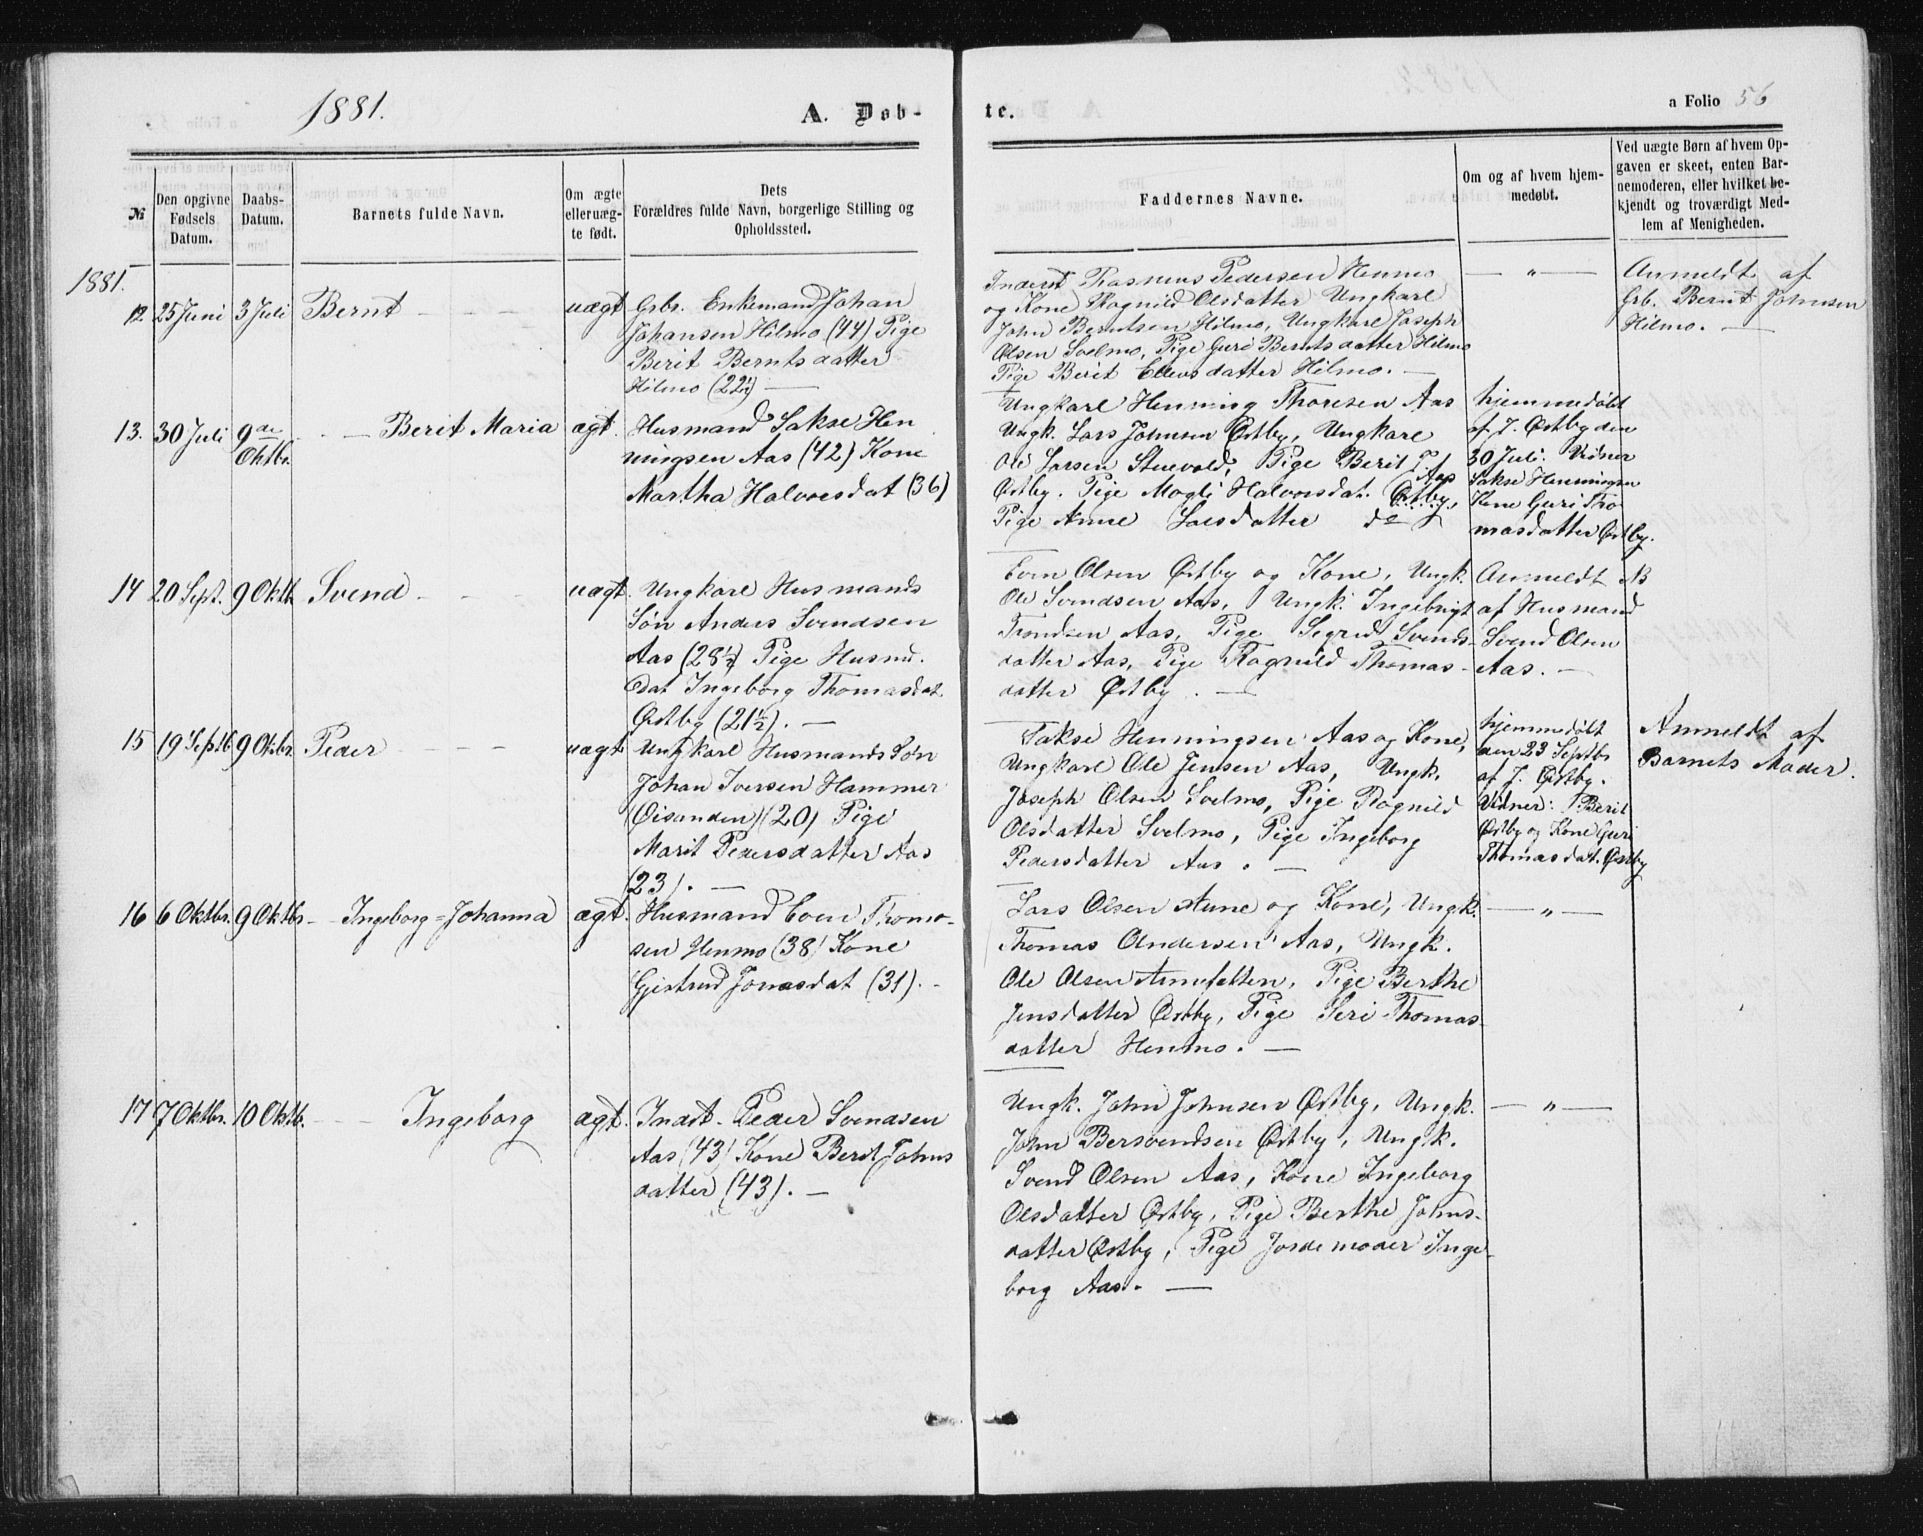 1881.
A. Døb-
№
Den opgivne Fødsels Datum.
Daabs-Datum.
Barnets fulde Navn.
Om ægte eller uæg-te født.
Dets
Forældres fulde Navn, borgerlige Stilling og
Opholdssted.
1881.
12. 25 Juni 3 Juli Bernt - - - - uægt Grbr. Enkemand Johan
Johansen Hilmo (44) Pige
Berit Berntsdatter
Hilmo (22½) —
13. 30 Juli 9de Oktbr. - — Berit Maria ægt. Husmand Sakse Hen
ningsen Aas (42) Kone
Martha Halvorsdat (36)
14 20 Sept. 9 Oktb. Svend - - - uægt. Ungkarl Husmands
Søn Anders Svendsen
Aas (28½) Pige Husmd.
Dat Ingeborg Thomasdat
Østby (21½). —
15 19 Septb. 9 Oktbr. Peder - - - - uægt Ungkarl Husmands Søn
Johan Iversen Hammer
(Øisanden) (20) Pige
Marit Pedersdatter Aas
(23). —
16 6 Oktbr. 9 Oktbr - - Ingeborg=Johanna ægt. Husmand Even Thom-
sen Henmo (38) Kone
Gjertrud Jonasdat (31). -
17 7 Oktbr. 10 Oktb. - - - Ingeborg ægt. Indst. Peder Svendsen
Aas (43) Kone Berit Johns
datter (43). —
te.
a Folio 56
Faddernes Navne.
Om og af hvem hjem-
medøbt.
Ved uægte Børn af hvem Op-
gaven er skeet, enten Bar-
nemoderen, eller hvilket be-
kjendt og troværdigt Med-
lem af Menigheden.
Inderst Rasmus Pedersen Henmo
og Kone Ragnild Olsdatter Ungkarl
John Berntsen Hilmo, Ungkarl Joseph
Olsen Svelmo, Pige Guri Berntsdatter Hilmo
Pige Berit Ellevsdatter Hilmo. —
— „ —
Anmeldt af
Grb. Bernt Johnsen
Hilmo. —
Ungkarl Henning Thoresen Aas
Ungk. Lars Johnsen Østby, Ungkarl
Ole Larsen Stuevold, Pige Berit T.
Østby. Pige Mogli Halvorsdat. Aas Østby,
Pige Anne Larsdatter do
hjemmedøbt
af J. Østby den
30 Juli. Vidner
Sakse Henningsen
Kone Guri Tho
masdatter Østby.
Even Olsen Østby og Kone, Ungk.
Ole Svendsen Aas, Ungk. Ingebrigt
Trondsen Aas, Pige Sigrid Svends-
datter Aas, Pige Ragnild Thomas-
datter Østby. —
Anmeldt NB
af Husmand
Svend Olsen
Aas. —
Sakse Henningsen Aas og Kone,
Ungkarl Ole Jensen Aas, Ungk.
Joseph Olsen Svelmo, Pige Ragnild
Olsdatter Svelmo, Pige Ingeborg
Pedersdatter Aas. —
hjemmedøbt
den 23 Septbr
af J. Østby.
Vidner: P. Berit
Østby og Kone Guri
Thomasdat. Østby
Anmeldt af
Barnets Moder.
Lars Olsen Aune og Kone, Ungk.
Thomas Andersen Aas, Ungk.
Ole Olsen Aunefatten, Pige Berthe
Jensdatter Østby, Pige Seri Thomas-
datter Henmo. —
— „ —
Ungk. John Johnsen Østby, Ungk.
John Bersvendsen Østby, Ungk.
Svend Olsen Aas, Kone Ingeborg
Olsdatter Østby, Pige Berthe Johns-
datter Østby, Pige Jordemoder Inge-
borg Aas. —
— „ —